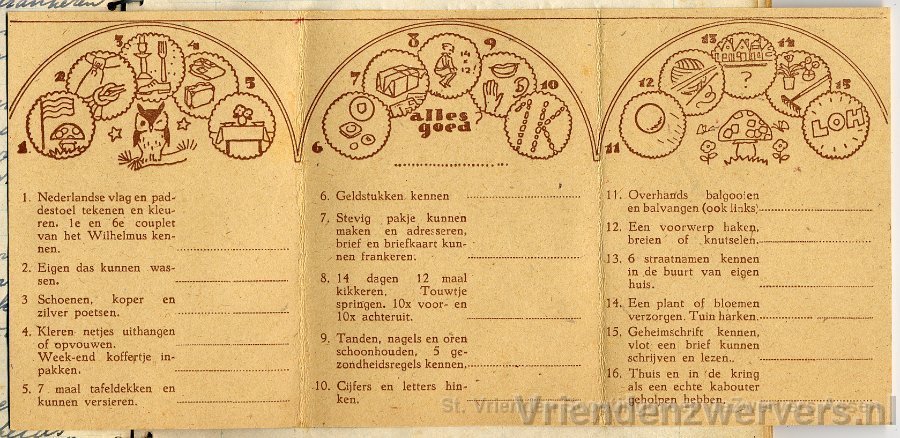 1
2
3
4
5
6
7
8
14
12
9
10
alles
goed
11
12
13
?
14
15
LOH
1. Nederlandse vlag en pad-
destoel tekenen en kleu-
ren. 1e en 6e couplet
van het Wilhelmus ken-
nen.
2. Eigen das kunnen was-
sen.
3 Schoenen, koper en
zilver poetsen.
4. Kleren netjes uithangen
of opvouwen.
Week-end koffertje in-
pakken.
5. 7 maal tafeldekken en
kunnen versieren.
6. Geldstukken kennen
7. Stevig pakje kunnen
maken en adresseren,
brief en briefkaart kun-
nen frankeren.
8. 14 dagen 12 maal
kikkeren. Touwtje
springen. 10x voor- en
10x achteruit.
9. Tanden, nagels en oren
schoonhouden, 5 ge-
zondheidsregels kennen,
10. Cijfers en letters hin-
ken.
11. Overhands balgooien
en balvangen (ook links)
12. Een voorwerp haken,
breien of knutselen.
13. 6 straatnamen kennen
in de buurt van eigen
huis.
14. Een plant of bloemen
verzorgen. Tuin harken.
15. Geheimschrift kennen,
vlot een brief kunnen
schrijven en lezen..
16. Thuis en in de kring
als een echte kabouter
geholpen hebben.
Vriendenzwervers.nl